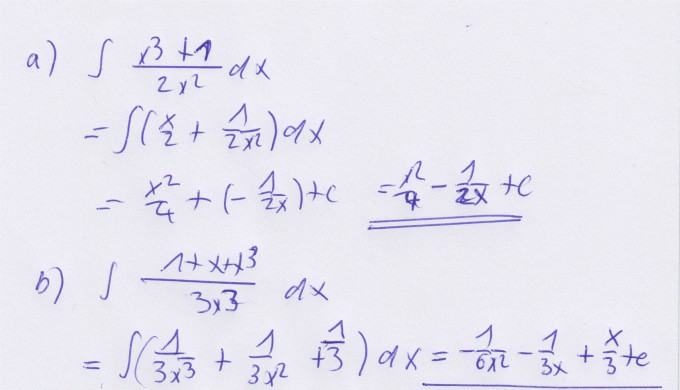 a) ∫ (x³+1)/(2x²) dx
= ∫(x/2 + 1/(2x²)) dx
= x²/4 + (-1/(2x)) + c = x²/4 - 1/(2x) + c
b) ∫ (1+x+x³)/(3x³) dx
= ∫(1/(3x³) + 1/(3x²) + 1/3) dx = -1/(6x²) - 1/(3x) + x/3 + c